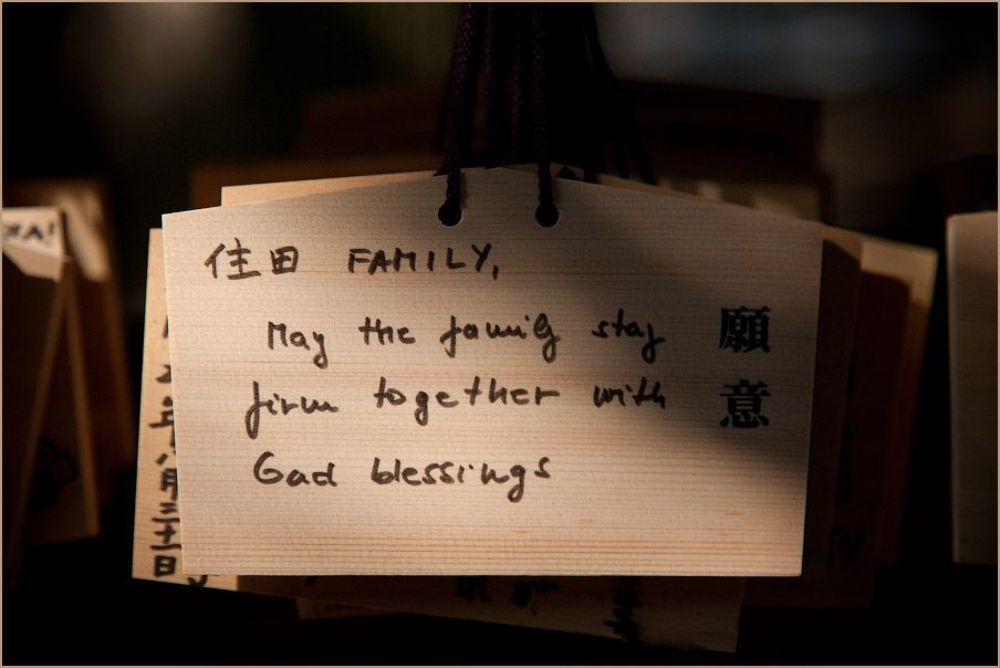 住田 FAMILY,
May the family stay
firm together with
God blessings
願意
年八月三十一日